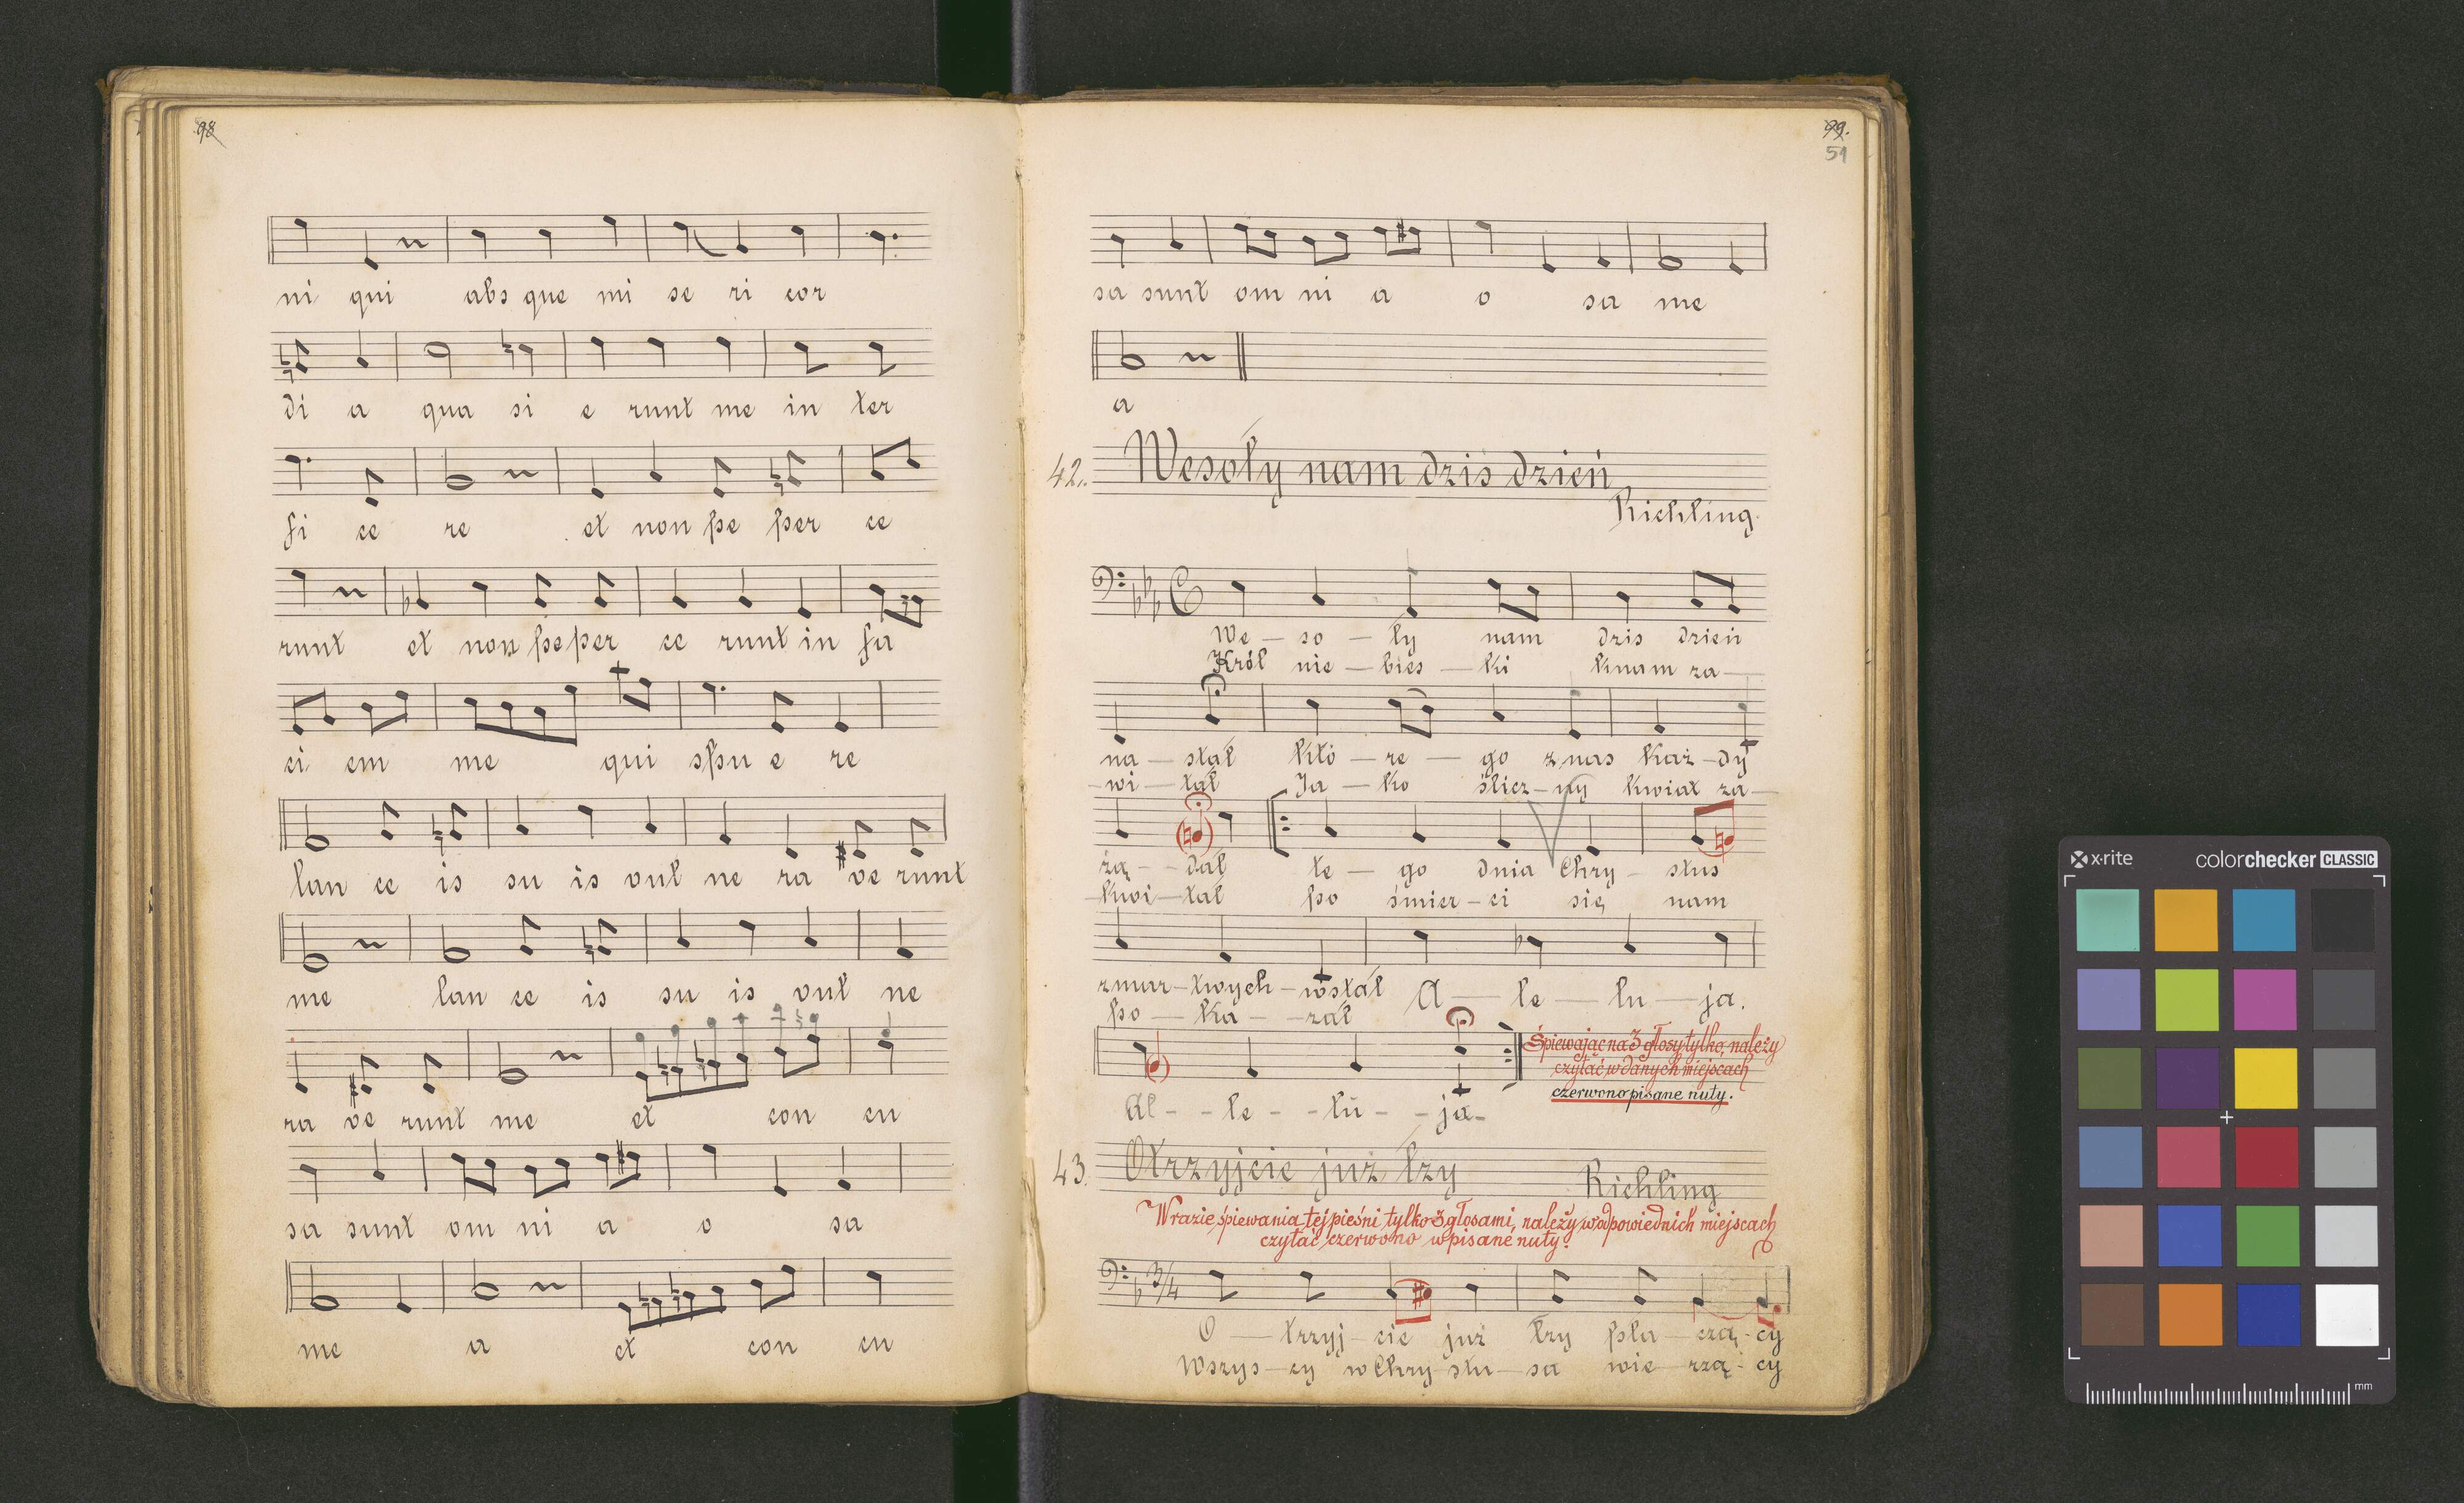 98
ni qui abs que mi se ri cor
di a qua si e runt me in ter
fi ce re et non pe per ce
runt et non pe per ce runt in fa
ci em me qui spu e re
lan ce is su is vul ne ra ve runt
me lan ce is su is vul ne
ra ve runt me et con cu
sa sunt om ni a o sa
me a et con cu
99.
51
sa sunt om ni a o sa me
a
42. Wesoły nam dzis dzień
Richling.
We – so – ły nam dzis dzień
Król nie – bies – ki knam za –
na – stał któ – re – go z nas każ – dy
– wi – tał Ja – ko ślicz – ny kwiat za –
żą – dał te – go dnia Chry – stus
– kwi – tał po śmier – ci się nam
zmar – twych – wstał A – le – lu – ja.
po – ka – zał
Śpiewając na 3 głosy tylko, należy
czytać w danych miejscach
czerwono pisane nuty.
Al – le – lu – ja –
43. Otrzyjcie już łzy Richling
W razie śpiewania tej pieśni tylko 3 głosami, należy w odpowiednich miejscach
czytać czerwono wpisane nuty.
3/4
O – trzyj – cie już łzy pła – czą – cy
Wszys – cy w Chry – stu – sa wie rzą – cy
x-rite colorchecker CLASSIC
mm